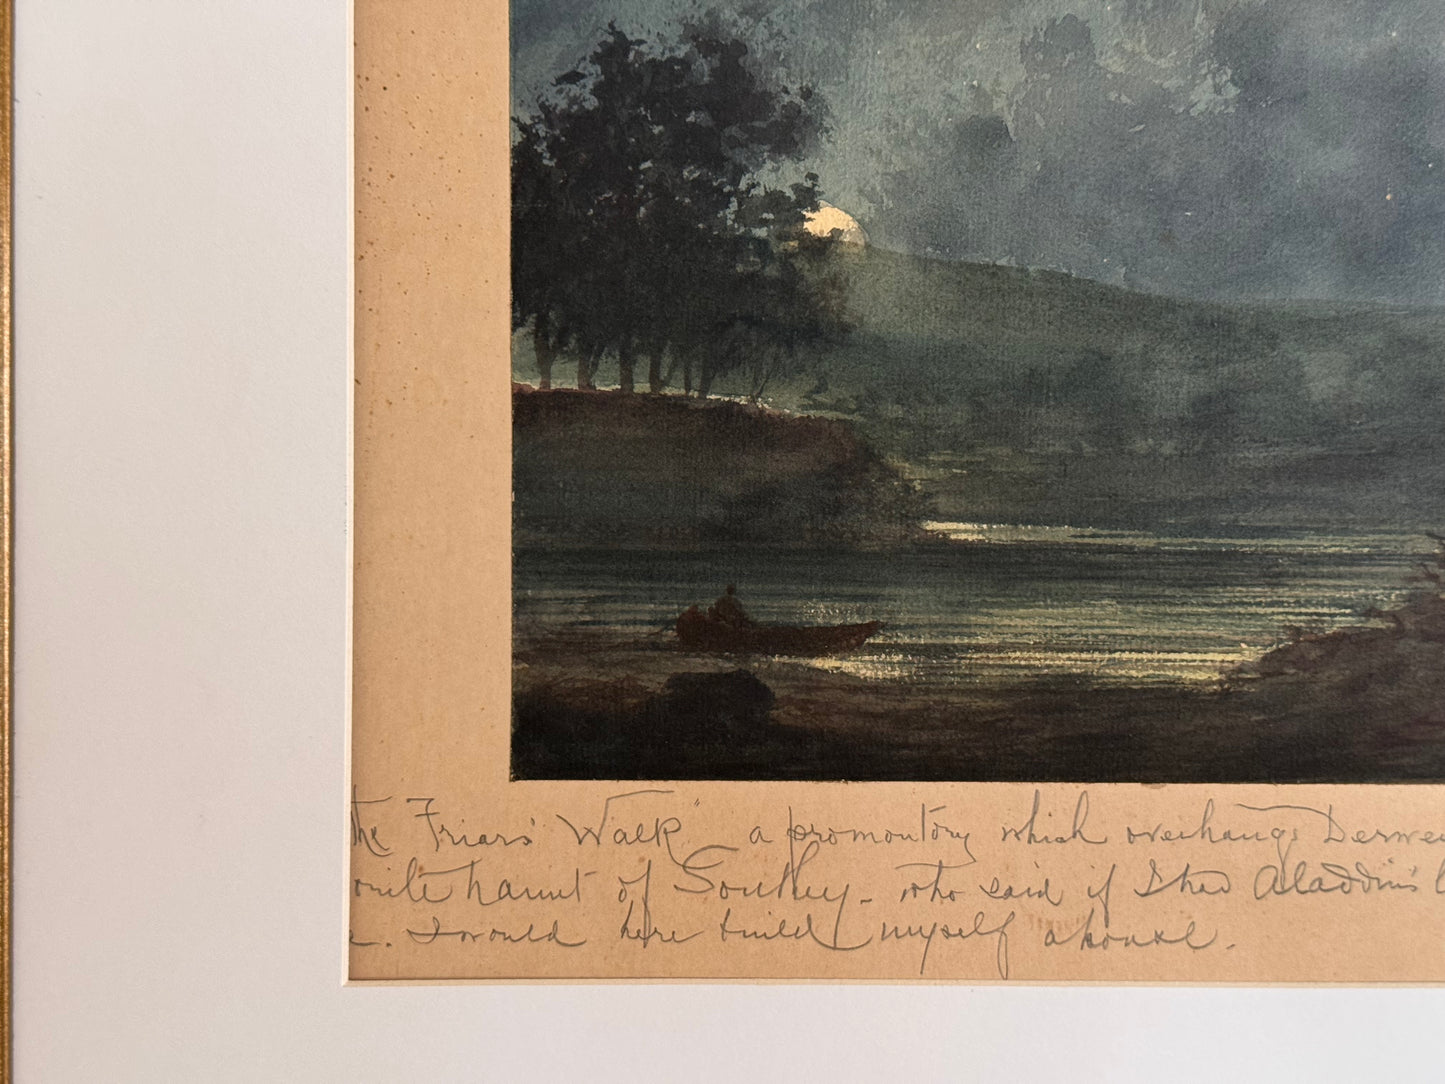 the Friars' Walk" a promontory which overhangs Derwen
orite haunt of Southey - who said if I had Aladdin's l
e. I would here build myself a house.